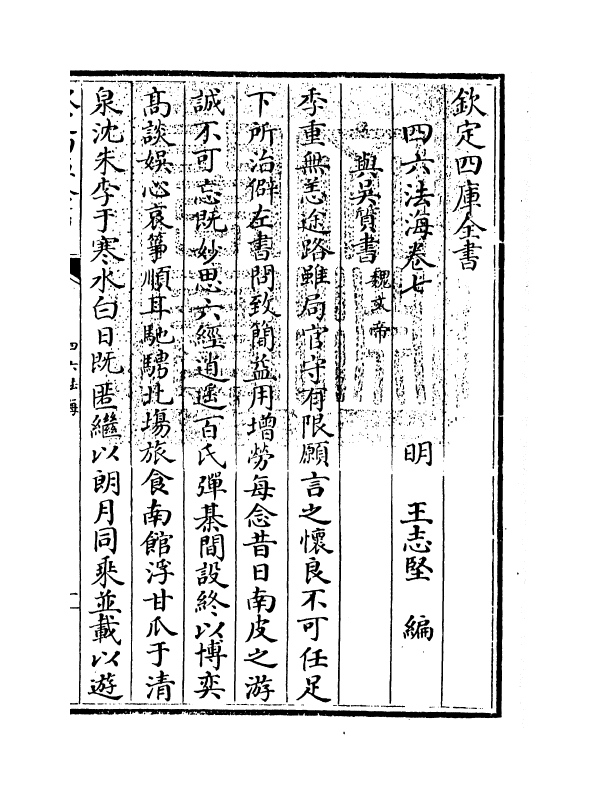 欽定四庫全書
四六法海卷七
明 王志堅 編
與吳質書 魏文帝
季重無恙途路雖局官守有限願言之懷良不可任足
下所治僻左書問致簡益用增勞每念昔日南皮之游
誠不可忘既妙思六經逍遙百氏彈棊間設終以博奕
髙談娱心哀筝順耳馳騁北場旅食南館浮甘瓜于清
泉沈朱李于寒水白日既匿繼以朗月同乘並載以遊
四六法海